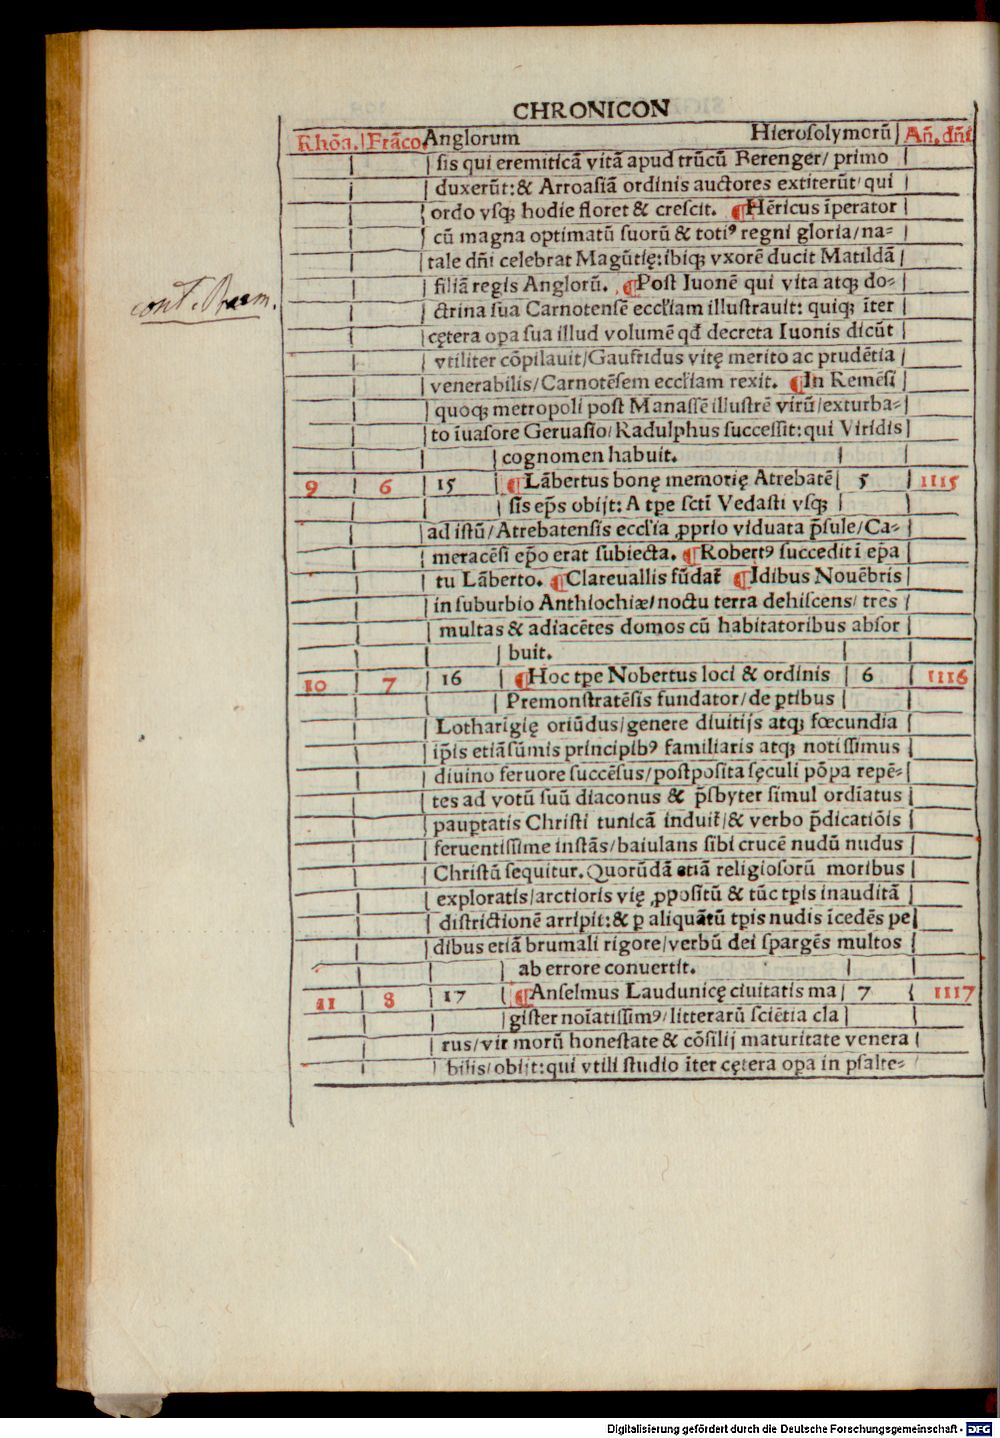 CHRONICON
Rhõa. Frãco. Anglorum Hieroſolymorũ Añ. dñi
ſis qui eremiticã vitã apud trũcũ Berenger/ primo
duxerũt: & Arroaſiã ordinis auctores extiterũt/ qui
ordo vſqꝫ hodie floret & creſcit. ¶Hẽricus ĩperator
cũ magna optimatũ ſuorũ & totiꝰ regni gloria/na⸗
tale dñi celebrat Magũtię: ibiqꝫ vxorẽ ducit Matildã
filiã regis Anglorũ. ¶Poſt Iuonẽ qui vita atqꝫ do⸗
ctrina ſua Carnotenſẽ eccl'iam illuſtrauit: quiqꝫ ĩter
cont. Praem.
cętera oꝑa ſua illud volumẽ qđ decreta Iuonis dicũt
vtiliter cõpilauit/Gaufridus vitę merito ac prudẽtia
venerabilis/Carnotẽſem eccl'iam rexit. ¶In Remẽſi
quoqꝫ metropoli poſt Manaſſẽ illuſtrẽ virũ/exturba⸗
to ĩuaſore Geruaſio/Radulphus ſucceſſit: qui Viridis
cognomen habuit.
9 6 15 ¶Lãbertus bonę memorię Atrebatẽ 5 1115
ſis ep̃s obijt: A tp̃e ſcti Vedaſti vſqꝫ
ad iſtũ/Atrebatenſis eccl'ia ꝓprio viduata p̃ſule/Ca⸗
meracẽſi ep̃o erat ſubiecta. ¶Robertꝰ ſuccedit ĩ ep̃a
tu Lãberto. ¶Clareuallis fũdat̃ ¶Idibus Nouẽbris
in ſuburbio Anthiochiæ/noctu terra dehiſcens/ tres
multas & adiacẽtes domos cũ habitatoribus abſor
buit.
10 7 16 ¶Hoc tp̃e Nobertus loci & ordinis 6 1116
Premonſtratẽſis fundator/de ꝑtibus
Lotharigię oriũdus/genere diuitijs atqꝫ fœcundia
ip̃is etiã ſũmis principibꝰ familiaris atqꝫ notiſſimus
diuino feruore ſuccẽſus/poſtpoſita ſęculi põpa repẽ⸗
tes ad votũ ſuũ diaconus & p̃ſbyter ſimul ordĩatus
pauꝑtatis Chriſti tunicã induit̃/& verbo p̃dicatiõis
feruentiſſime inſtãs/baiulans ſibi crucẽ nudũ nudus
Chriſtũ ſequitur. Quorũdã etiã religioſorũ moribus
exploratis/arctioris vię ꝓpoſitũ & tũc tp̃is inauditã
diſtrictionẽ arripit: & ꝑ aliquãtũ tp̃is nudis ĩcedẽs pe
dibus etiã brumali rigore/verbũ dei ſpargẽs multos
ab errore conuertit.
11 8 17 ¶Anſelmus Laudunicę ciuitatis ma 7 1117
giſter noĩatiſſimꝰ/litterarũ ſciẽtia cla
rus/vir morũ honeſtate & cõſilij maturitate venera
bilis/obijt: qui vtili ſtudio ĩter cętera oꝑa in pſalte⸗
Digitalisierung gefördert durch die Deutsche Forschungsgemeinschaft - DFG